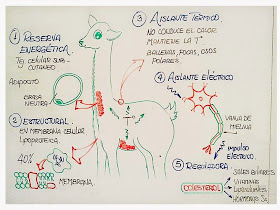 ① RESERVA
ENERGÉTICA.
TEJ. CELULAR SUB-
CUTANEO
ADIPOCITO
GRASA
NEUTRA
② ESTRUCTURAL.
EN MEMBRANA CELULAR
LIPOPROTEICA.
40%
MEMBRANA.
③ AISLANTE TÉRMICO
NO CONDUCE EL CALOR
MANTIENE LA T°
BALLENAS, FOCAS, OSOS
POLARES
④ AISLANTE ELÉCTRICO
VAINA DE
MELINA
IMPULSO
ELÉCTRICO.
⑤ REGULADORA
COLESTEROL
SALES BILIARES
VITAMINAS
HORMONAS SX